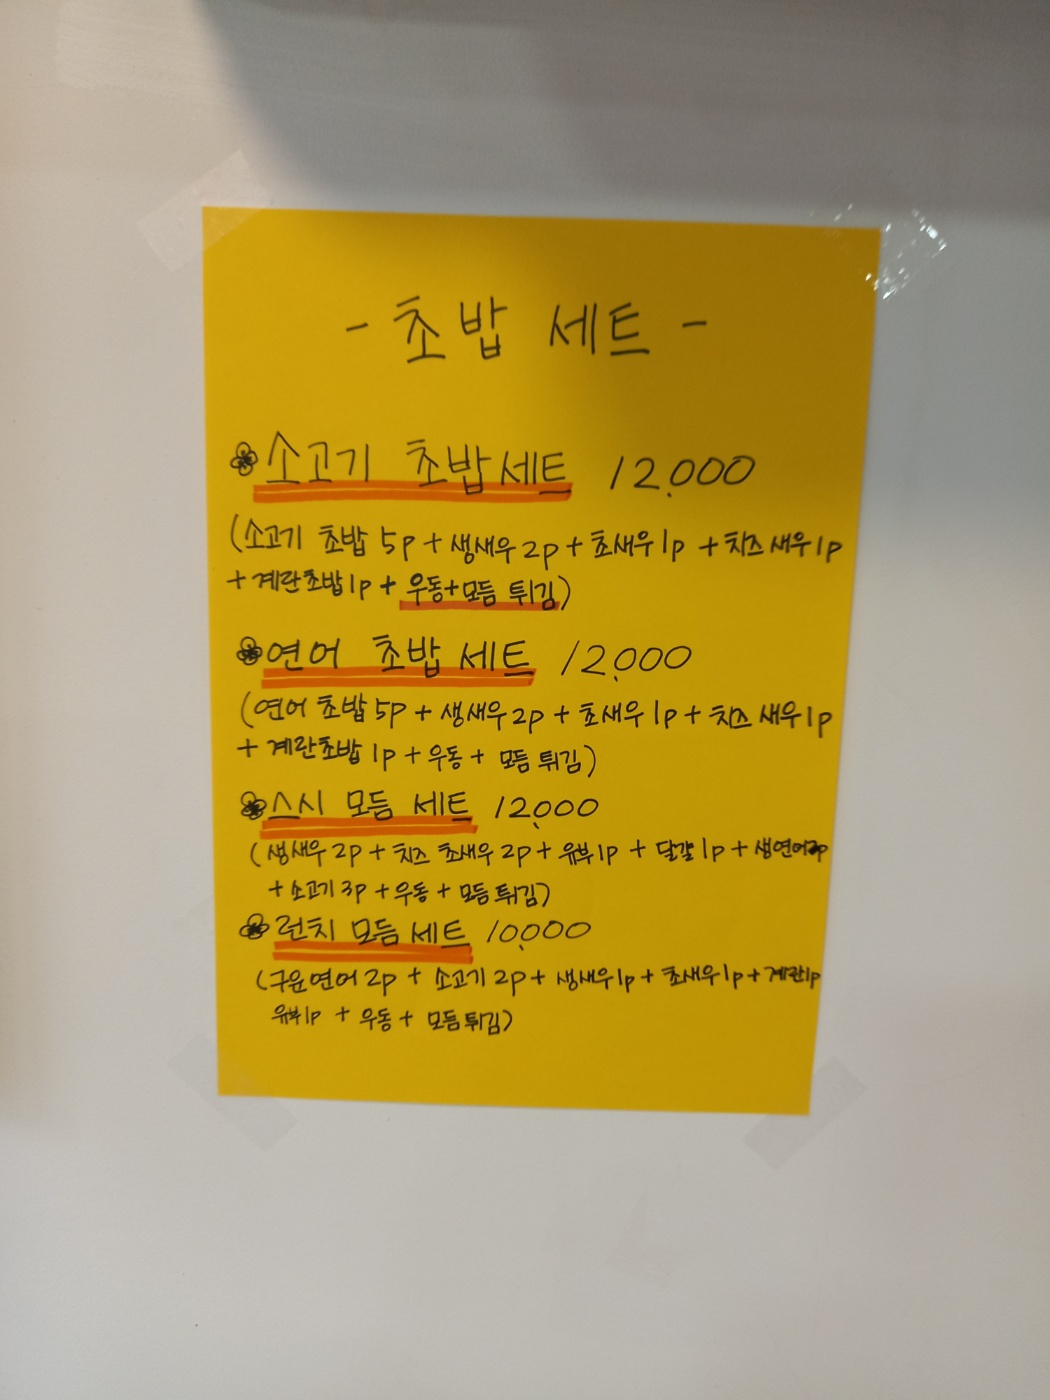 - 초밥 세트 -
소고기 초밥세트 12,000
(소고기 초밥 5p + 생새우 2p + 초새우 1p + 치즈새우 1p
+ 계란초밥 1p + 우동+모듬 튀김)
연어 초밥 세트 12,000
(연어 초밥 5p + 생새우 2p + 초새우 1p + 치즈 새우 1p
+ 계란초밥 1p + 우동 + 모듬 튀김)
스시 모듬 세트 12,000
(생새우 2p + 치즈 초새우 2p + 유부 1p + 달걀 1p + 생연어 2p
+ 소고기 3p + 우동 + 모듬튀김)
런치 모듬세트 10,000
(구운연어 2p + 소고기 2p + 생새우 1p + 초새우 1p + 계란 1p
유부 1p + 우동 + 모듬튀김)